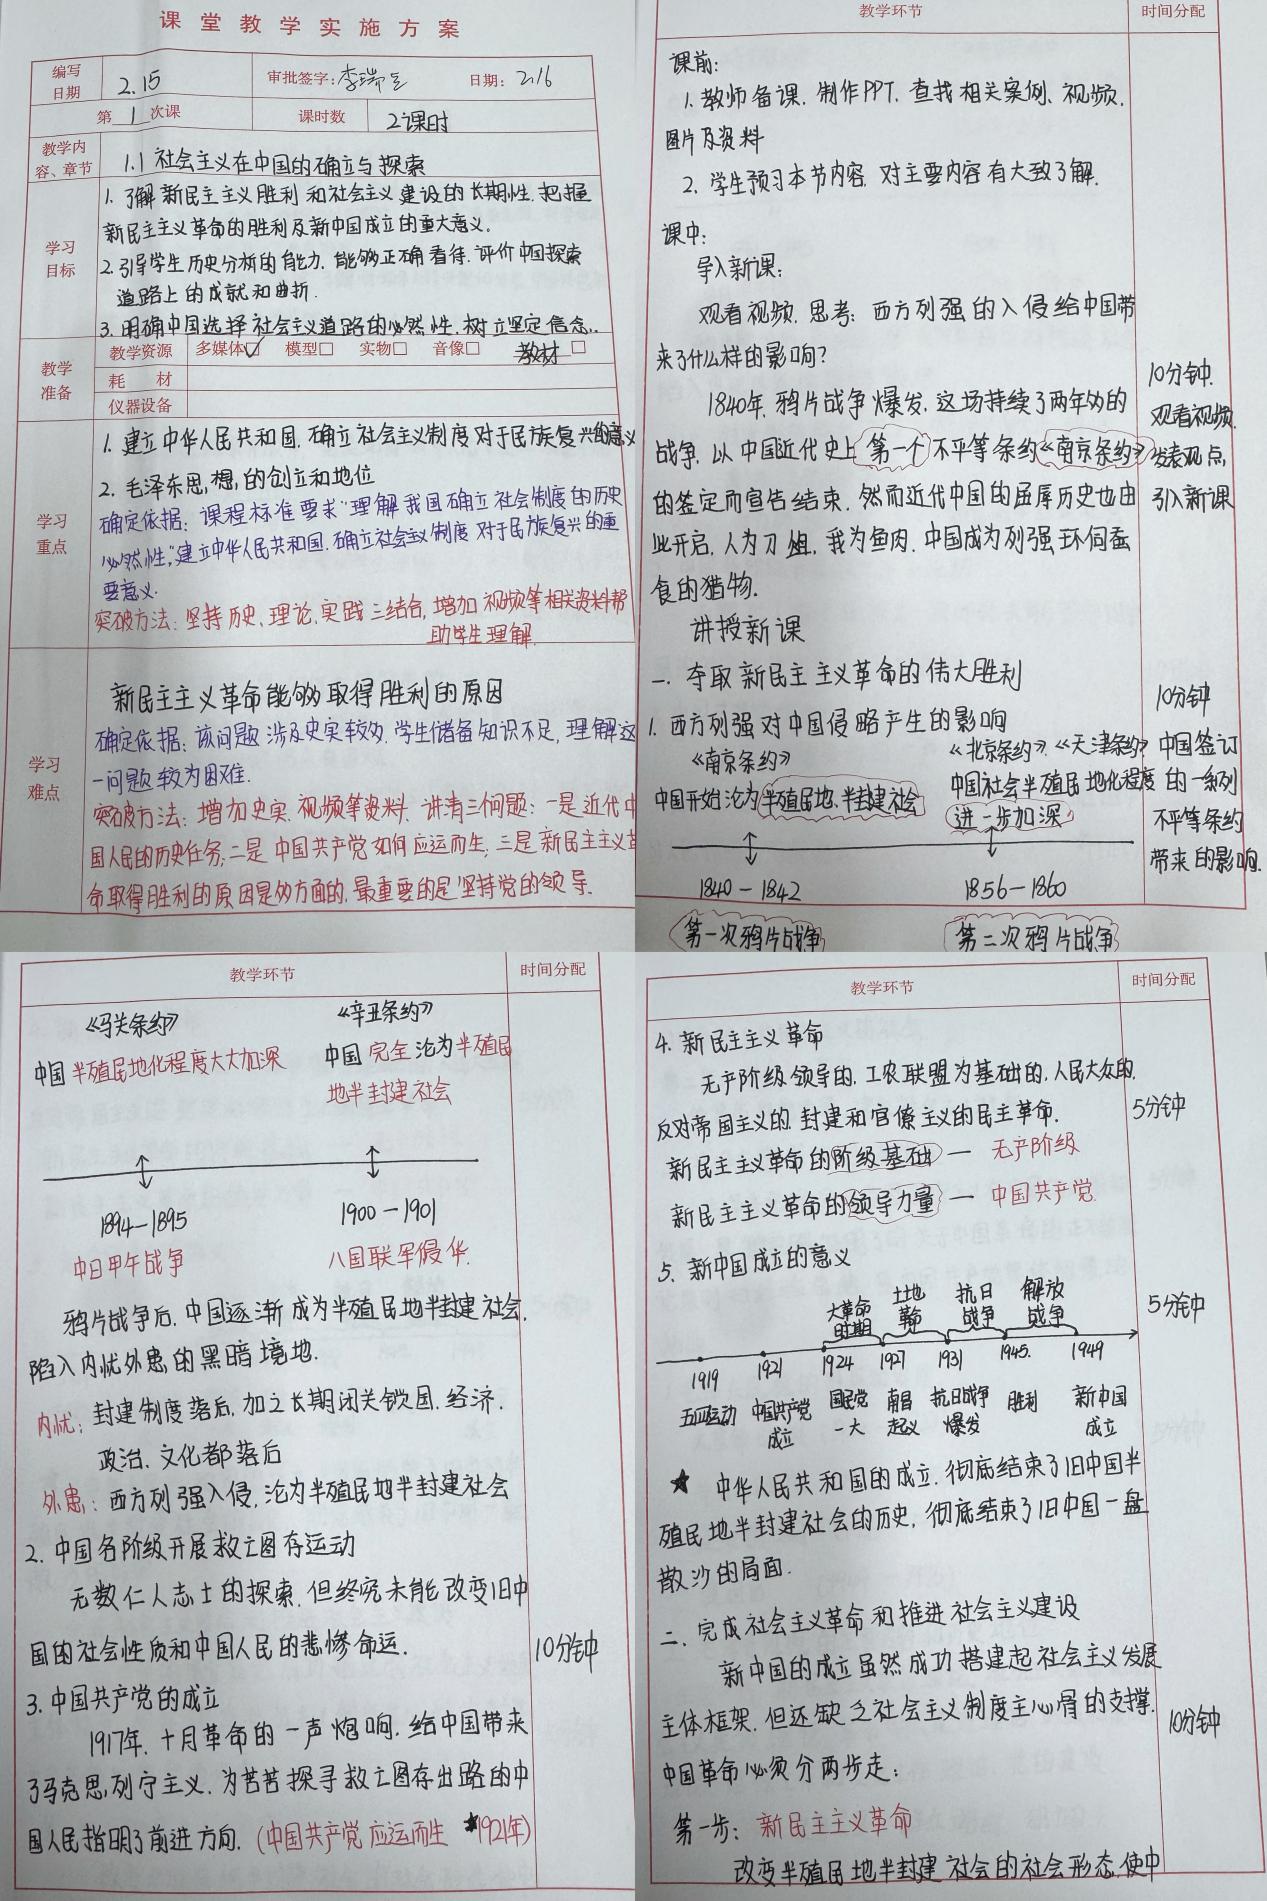 课堂教学实施方案
编写日期 2.15 审批签字: 日期: 2.16
第 1 次课 课时数 2课时
教学内容、章节 1.1 社会主义在中国的确立与探索
学习目标
1. 了解新民主主义胜利和社会主义建设的长期性.把握
新民主主义革命的胜利及新中国成立的重大意义.
2. 引导学生历史分析的能力,能够正确看待.评价中国探索
道路上的成就和曲折.
3. 明确中国选择社会主义道路的必然性.树立坚定信念.
教学准备
教学资源 多媒体☑ 模型□ 实物□ 音像□ 教材 □
耗 材
仪器设备
学习重点
1. 建立中华人民共和国.确立社会主义制度对于民族复兴的意义
2. 毛泽东思想,的创立和地位
确定依据:课程标准要求"理解我国确立社会制度的历史
必然性,"建立中华人民共和国.确立社会主义制度对于民族复兴的重
要意义.
突破方法:坚持历史、理论.实践三结合,增加视频等相关资料帮
助学生理解.
学习难点
新民主主义革命能够取得胜利的原因
确定依据:该问题涉及史实较多.学生储备知识不足,理解这
一问题较为困难.
突破方法:增加史实.视频等资料.讲清三个问题:一是近代中
国人民的历史任务;二是中国共产党如何应运而生;三是新民主主义革
命取得胜利的原因是多方面的.最重要的是坚持党的领导.
教学环节 时间分配
课前:
1. 教师备课.制作PPT.查找相关案例、视频.
图片及资料
2. 学生预习本节内容.对主要内容有大致了解.
课中:
导入新课:
观看视频.思考:西方列强的入侵给中国带
来了什么样的影响?
10分钟.
观看视频.
发表观点,
引入新课
1840年.鸦片战争爆发.这场持续了两年多的
战争.以中国近代史上第一个不平等条约《南京条约》
的签定而宣告结束.然而近代中国的屈辱历史也由
此开启.人为刀俎,我为鱼肉.中国成为列强环伺蚕
食的猎物.
讲授新课
一.夺取新民主主义革命的伟大胜利
1. 西方列强对中国侵略产生的影响
10分钟
中国签订
的一系列
不平等条约
带来的影响.
《南京条约》 《北京条约》.《天津条约》
中国开始沦为半殖民地、半封建社会 中国社会半殖民地化程度
进一步加深
1840-1842 1856-1860
第一次鸦片战争 第二次鸦片战争
教学环节 时间分配
《马关条约》 《辛丑条约》
中国半殖民地化程度大大加深 中国完全沦为半殖民
地半封建社会
1894-1895 1900-1901
中日甲午战争 八国联军侵华.
鸦片战争后.中国逐渐成为半殖民地半封建社会.
陷入内忧外患的黑暗境地.
内忧:封建制度落后,加之长期闭关锁国.经济.
政治.文化都落后
外患:西方列强入侵,沦为半殖民地半封建社会
2. 中国各阶级开展救亡图存运动
无数仁人志士的探索.但终究未能改变旧中
国的社会性质和中国人民的悲惨命运.
10分钟
3. 中国共产党的成立
1917年.十月革命的一声炮响.给中国带来
了马克思,列宁主义.为苦苦探寻救亡图存出路的中
国人民指明了前进方向.(中国共产党应运而生 ★1921年)
教学环节 时间分配
4. 新民主主义革命
无产阶级领导的.工农联盟为基础的.人民大众的.
反对帝国主义的.封建和官僚主义的民主革命.
5分钟
新民主主义革命的阶级基础 — 无产阶级
新民主主义革命的领导力量 — 中国共产党.
5. 新中国成立的意义
5分钟
大革命时期 土地革命 抗日战争 解放战争
1919 1921 1924 1927 1931 1945. 1949
五四运动 中国共产党成立 国民党一大 南昌起义 抗日战争爆发 胜利 新中国成立
★ 中华人民共和国的成立.彻底结束了旧中国半
殖民地半封建社会的历史,彻底结束了旧中国一盘
散沙的局面.
二.完成社会主义革命和推进社会主义建设
新中国的成立虽然成功搭建起社会主义发展
主体框架.但还缺乏社会主义制度主心骨的支撑.
中国革命必须分两步走:
10分钟
第一步:新民主主义革命
改变半殖民地半封建社会的社会形态.使中